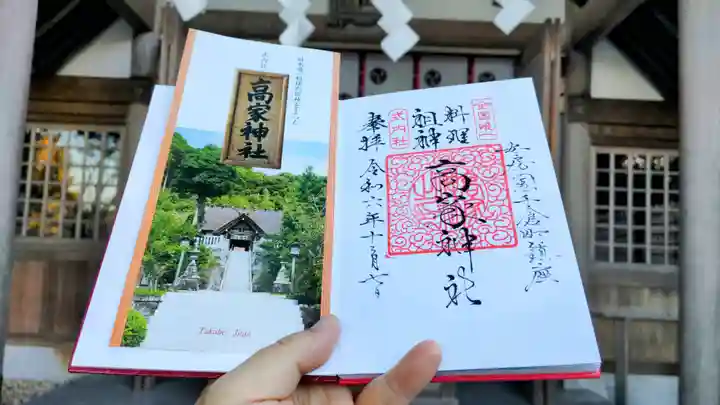 高家神社
Takabe Jinja
全国唯一
式内社
料理
祖神
高家神社
奉拝 令和六年十一月六日
安房国千倉町鎮座